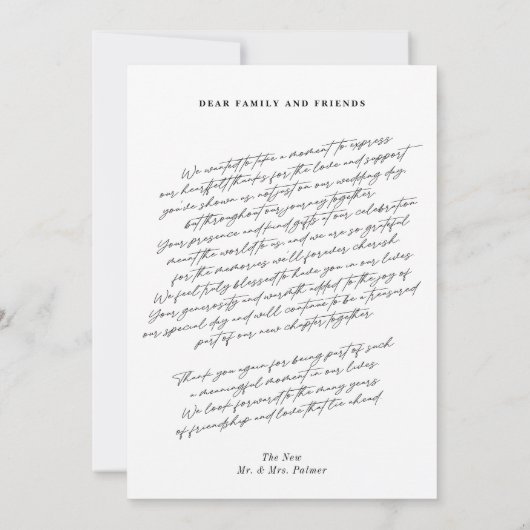 DEAR FAMILY AND FRIENDS
We wanted to take a moment to express
our heartfelt thanks for the love and support
you've shown us not just on our wedding day,
but throughout our journey together
Your presence and kind gifts at our celebration
meant the world to us and we are so grateful
for the memories we'll forever cherish
We feel truly blessed to have you in our lives
Your generosity and warmth added to the joy of
our special day and will continue to be a treasured
part of our new chapter together
Thank you again for being part of such
a meaningful moment in our lives
We look forward to the many years
of friendship and love that lie ahead
The New
Mr. & Mrs. Palmer